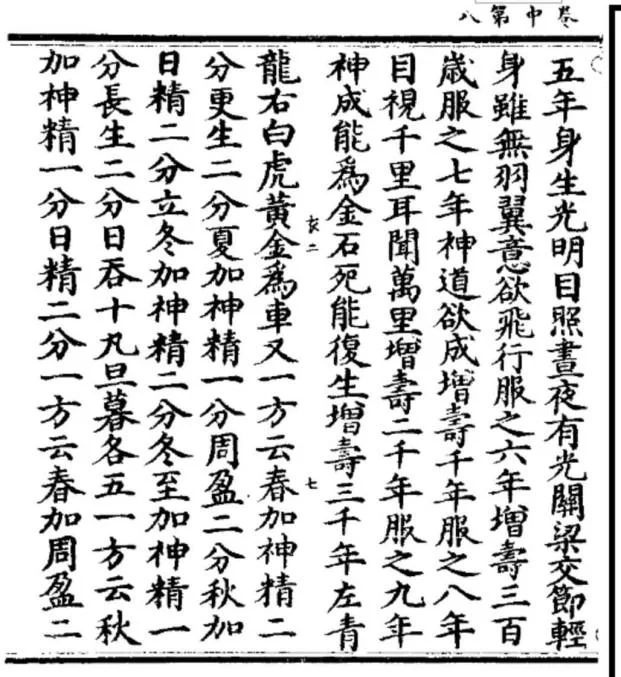 卷中第八
五年身生光明目照晝夜有光關梁交節輕
身雖無羽翼意欲飛行服之六年增壽三百
歲服之七年神道欲成增壽千年服之八年
目視千里耳聞萬里增壽二千年服之九年
神成能爲金石死能復生增壽三千年左青
龍右白虎黃金爲車又一方云春加神精二
分更生二分夏加神精一分周盈二分秋加
日精二分立冬加神精二分冬至加神精一
分長生二分日吞十丸旦暮各五一方云秋
加神精一分日精二分一方云春加周盈二